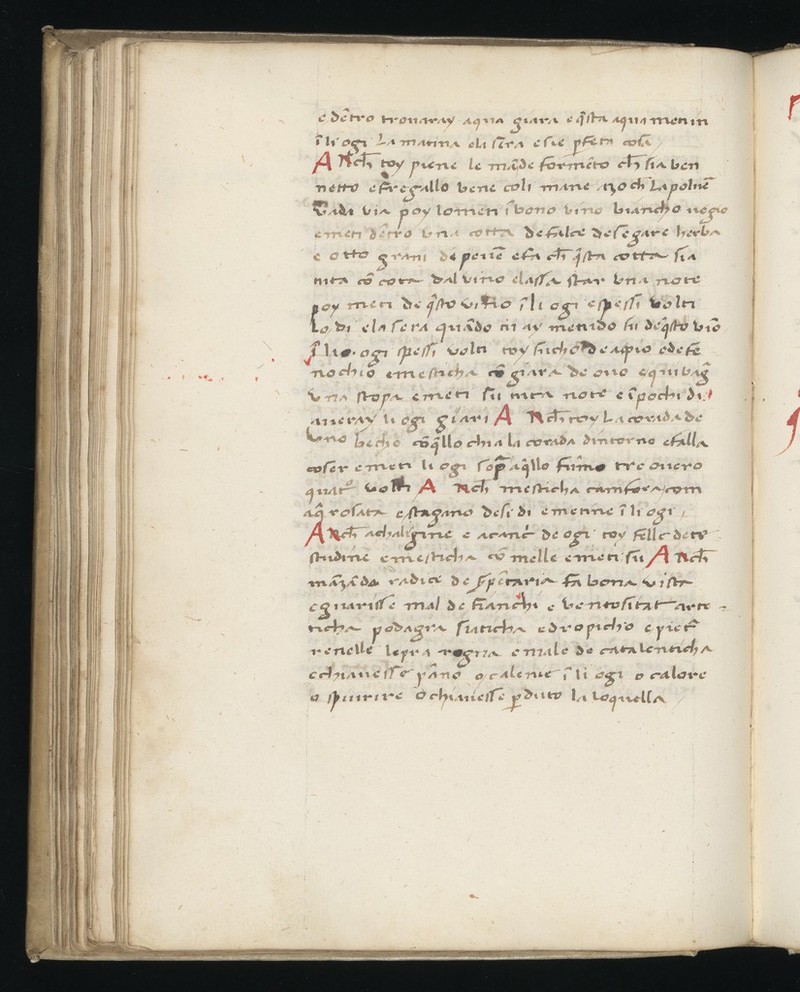 e dẽtro trovaray aqua giara e q̃sta aqua meti in
ĩ li ogi La matina ela sera e sie ꝑfeta cosa
ANch̃ toy piene le mãde formẽto ch̃ sia ben
netto e fregallo bene coli mane azo ch̃ la polvẽ
vada via poy lo meti ĩ bono vino biancho
e meti dẽtro una cotta de falce de segare herba
e otto grani de pevẽ e fa ch̃ q̃sta cotta sia
tuta cõ cota dal vino e lassa star una note
poy meti de q̃sto vino ĩ li ogi e spessi volti
Lo di e la sera quãdo ay metudo su de q̃sto viõ
ĩ li ogi spessi volti toy sucho de apio e de fe
nochio e mesticha cõ giara de ovo
una stopa e meti su tuta note e ĩ pochi di
averay li ogi giari ANch̃ toy La corada de
uno becho cõ q̃llo chia la corada dintorno e falla
coser e meti li ogi sopra aq̃llo fumo tre overo
quatº volti ANch̃ mesticha camfora com
aq̃ rosata e stagano desi di e metine ĩ li ogi
ANch̃ achaligine e de ogi toy felle de te
studine e mesticha cõ melle e meti su ANch̃
radice de fa bona vista
e guarisse mal de fianchi e ventositat arte
ticha podagra siaticha edropicho e piet̃
renelle lepra rogna e male de catalenticha
e chi avesse pãno o calenie ĩ li ogi o calore
o o chi avesse ꝑduto la loquella